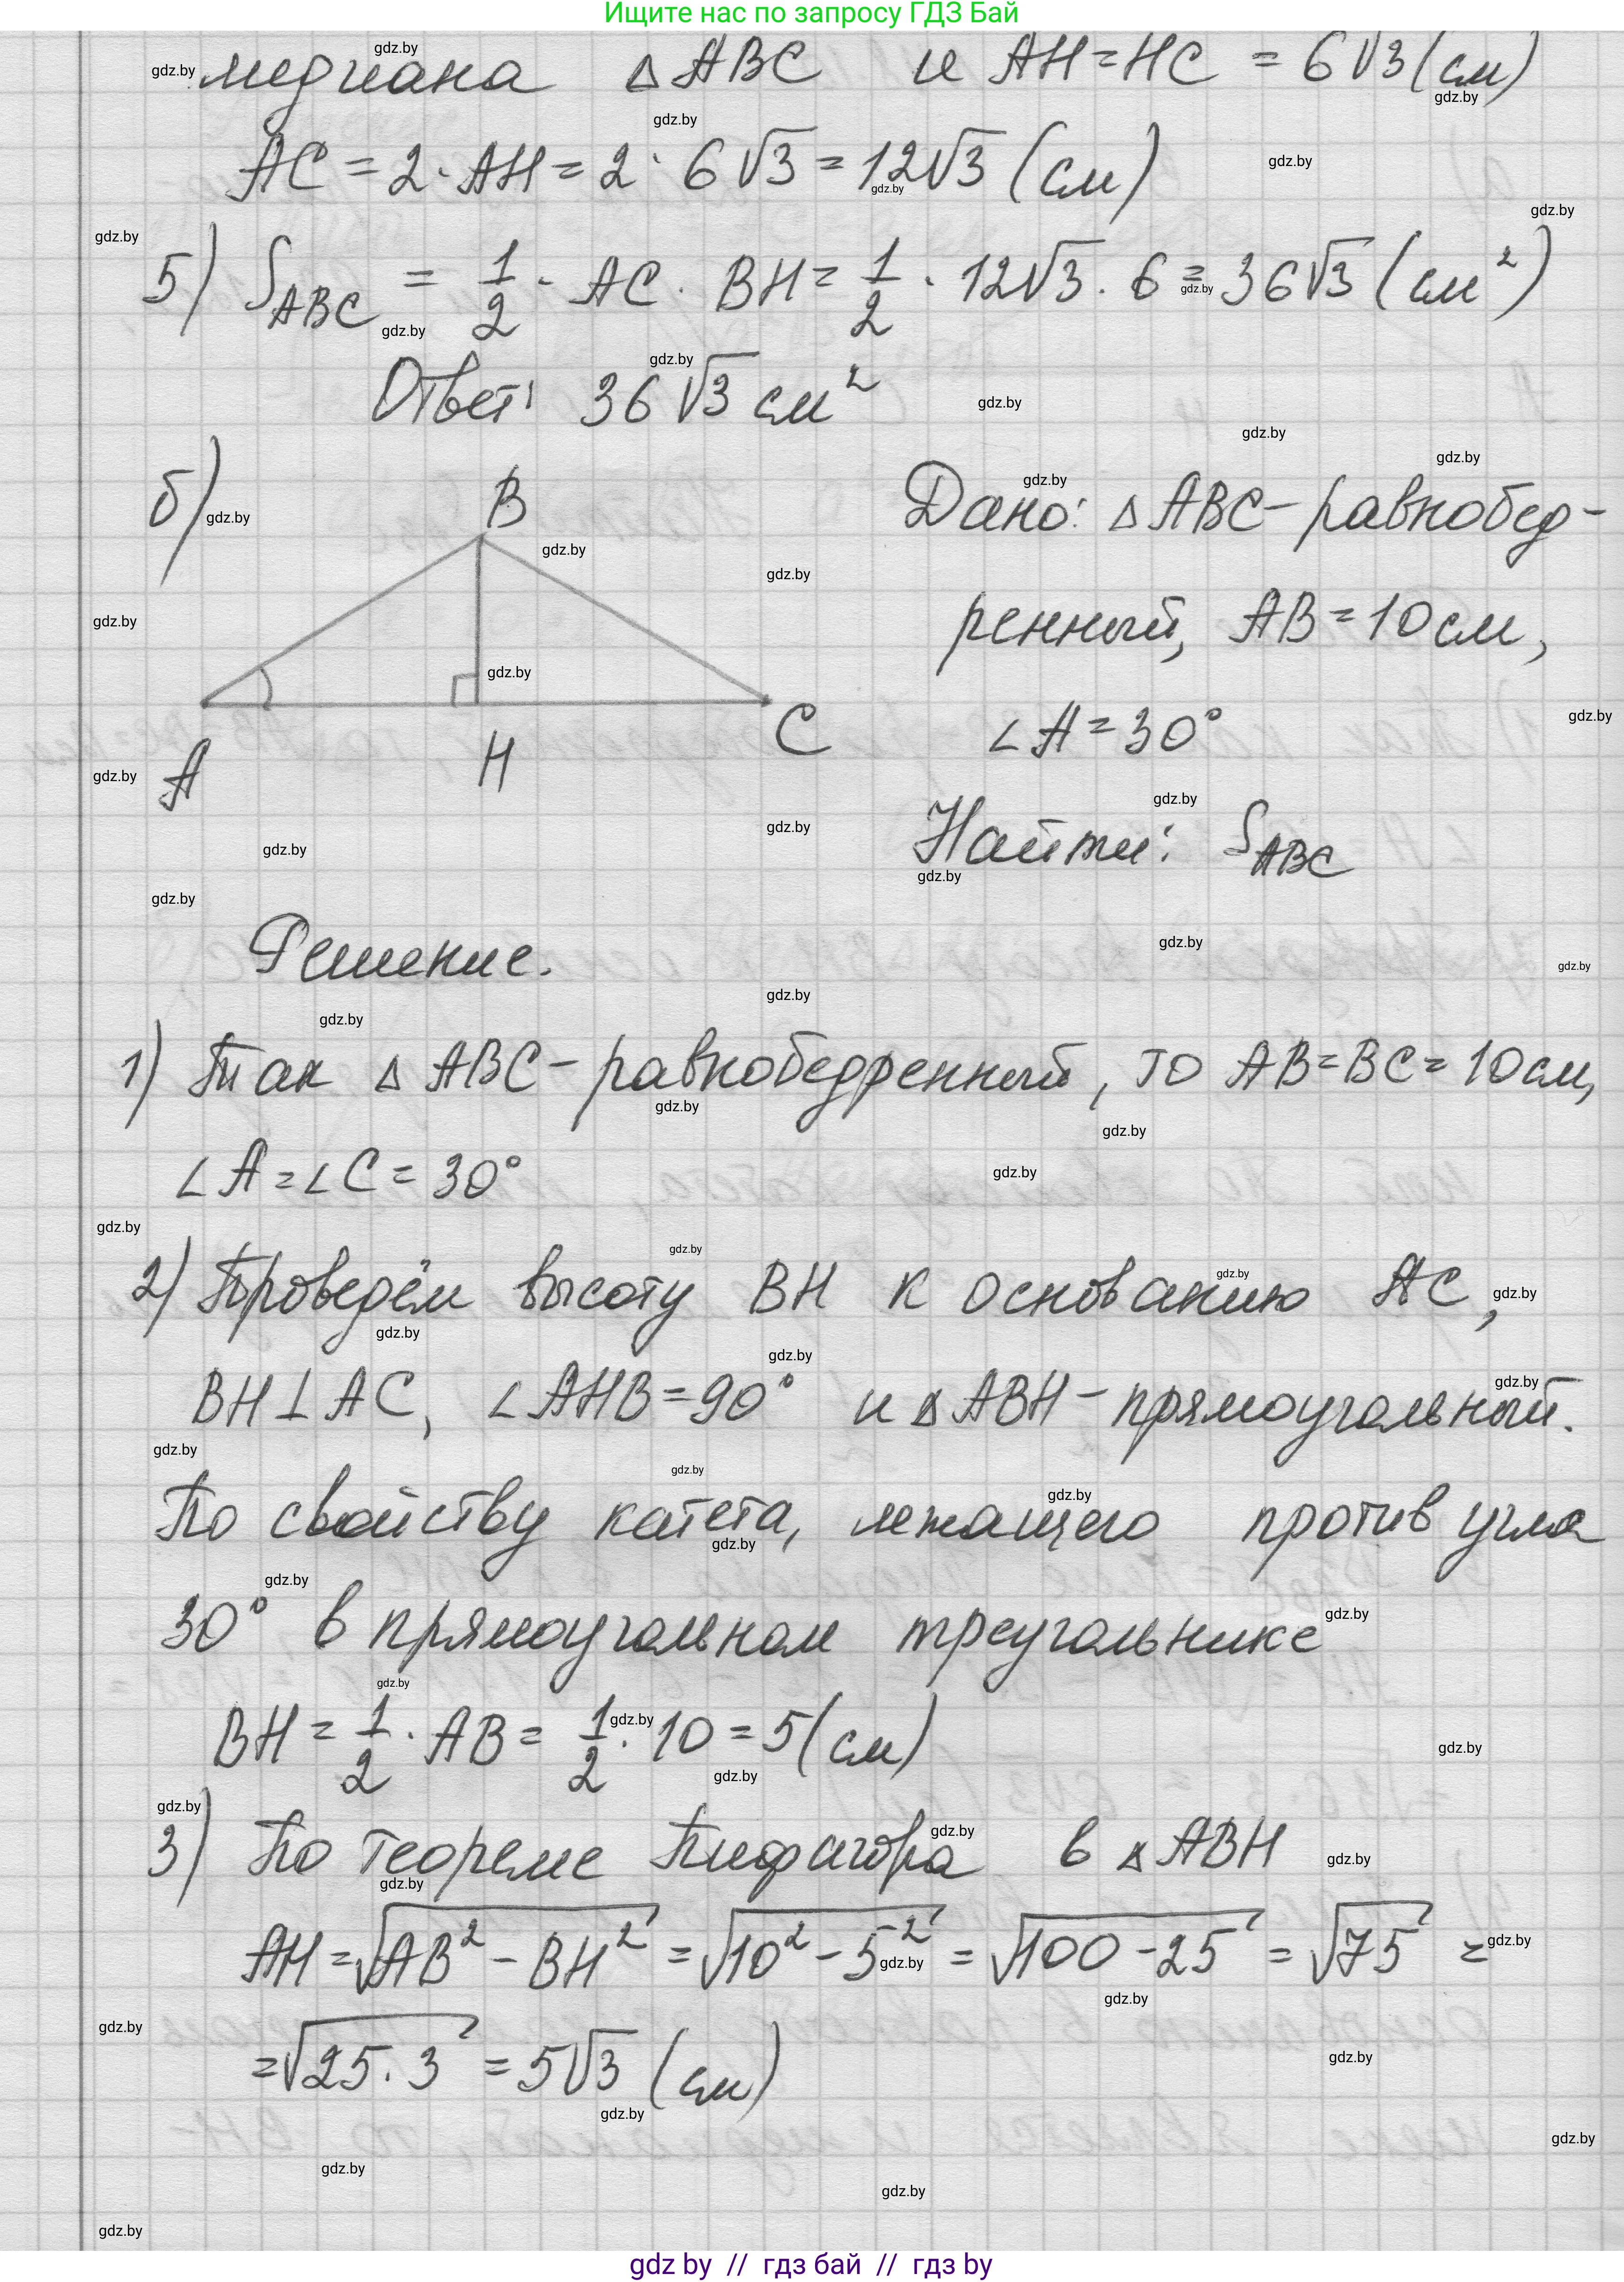 Ищите нас по запросу ГДЗ Бай
медиана △ABC и AH=HC = 6√3(см)
AC = 2·AH = 2·6√3 = 12√3 (см)
5) S_ABC = 1/2 · AC · BH = 1/2 · 12√3 · 6 = 36√3 (см²)
Ответ: 36√3 см²
б)
B
A
H
C
Дано: △ABC-равнобед-
ренный, AB=10см,
∠A=30°
Найти: S_ABC
Решение.
1) Так △ABC-равнобедренный, то AB=BC=10см,
∠A=∠C=30°
2) Проведём высоту BH к основанию AC,
BH⊥AC, ∠AHB=90° и △ABH-прямоугольный.
По свойству катета, лежащего против угла
30° в прямоугольном треугольнике
BH = 1/2 · AB = 1/2 · 10 = 5(см)
3) По теореме Пифагора в △ABH
AH = √(AB² - BH²) = √(10² - 5²) = √(100 - 25) = √75 =
= √(25·3) = 5√3 (см)
gdz by // гдз бай // гдз by